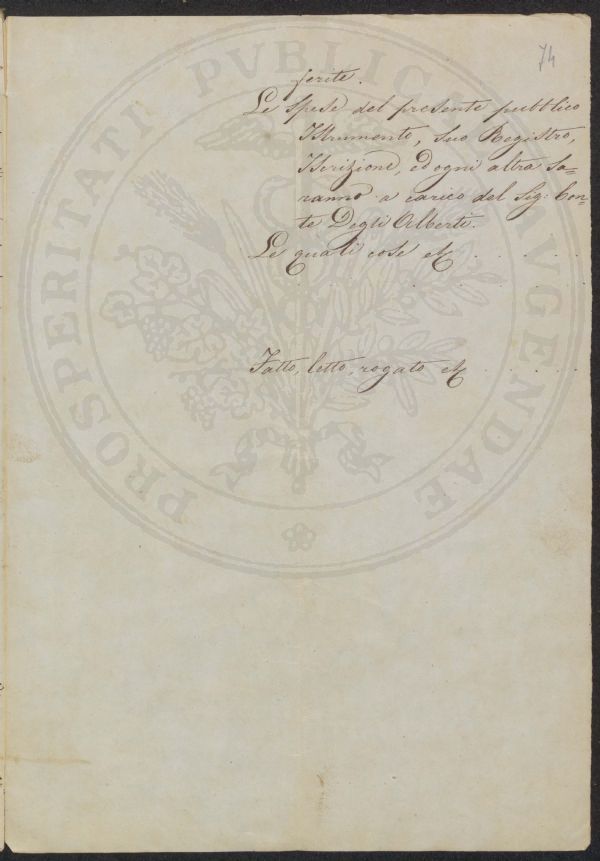 74
ferite.
Le spese del presente pubblico
Istrumento, suo Registro,
Iscrizione, ed ogni altra sa=
ranno a carico del Sig: Con=
te Degli Alberti.
Le quali cose etc
Fatto, letto, rogato etc
PROSPERITATI PVBLICAE AVGENDAE